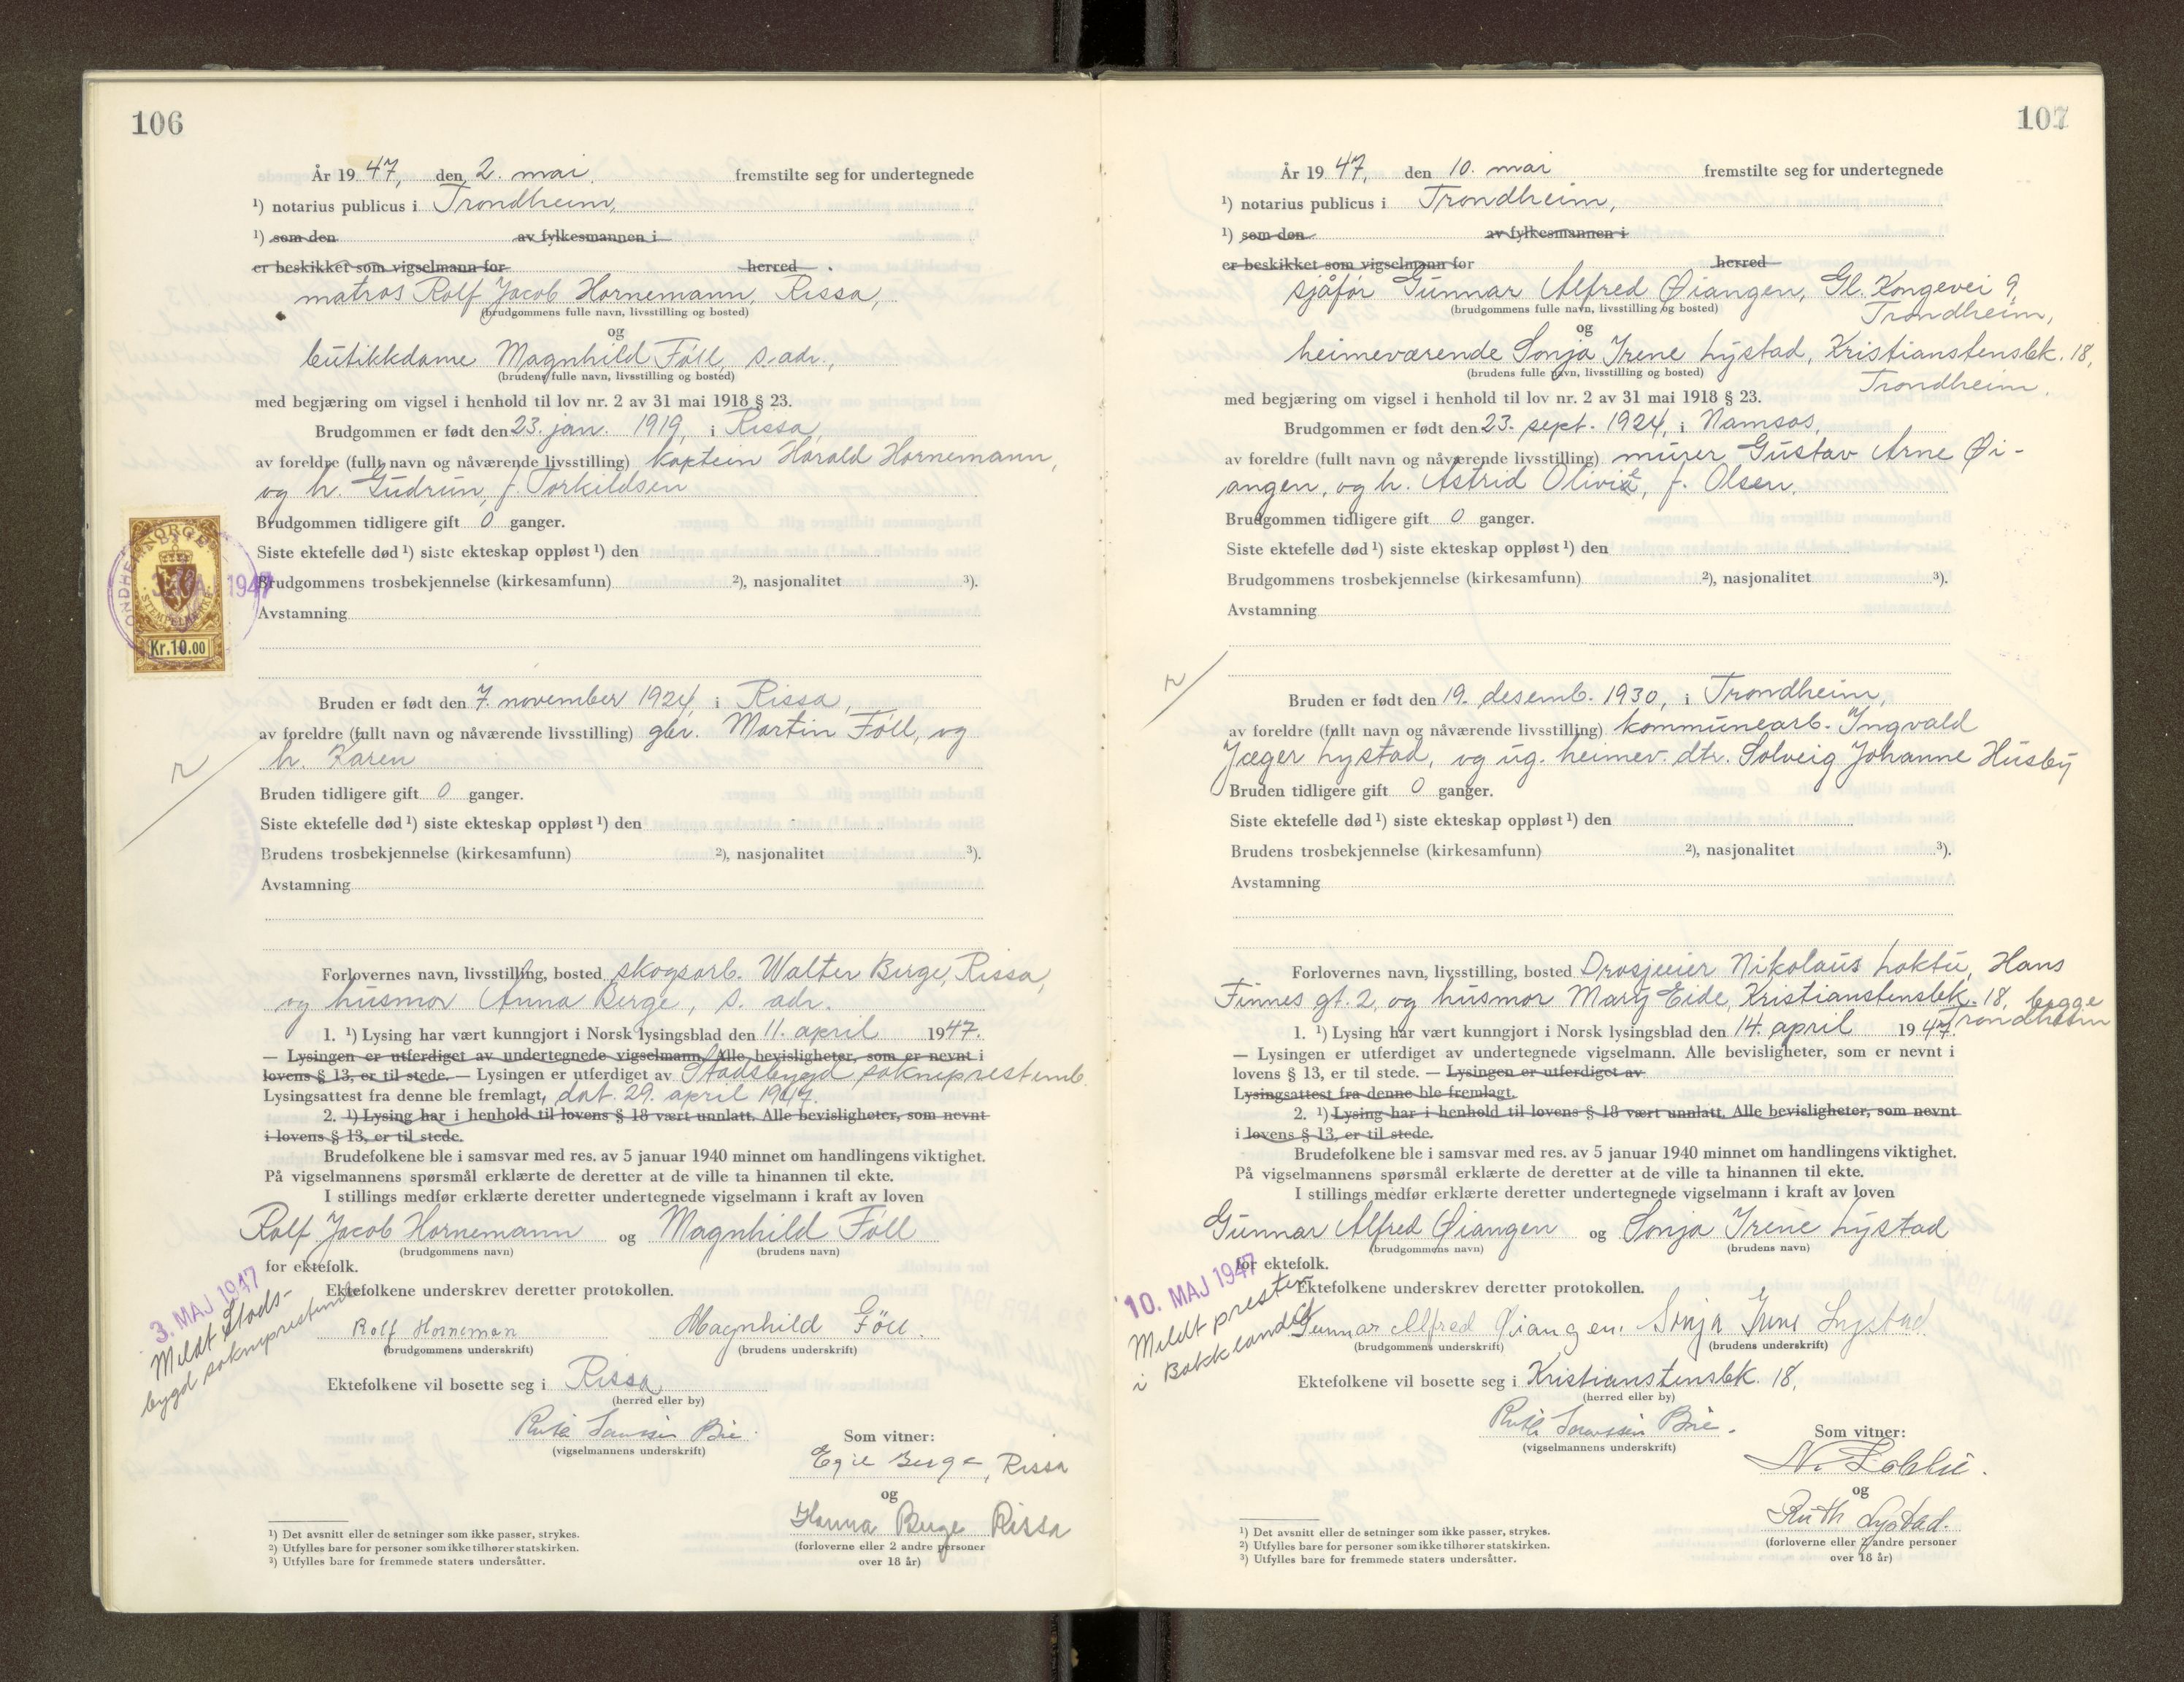 106
År 19 47, den 2. mai fremstilte seg for undertegnede
¹) notarius publicus i Trondheim,
¹) som den av fylkesmannen i
er beskikket som vigselmann for herred
matros Rolf Jacob Hornemann, Rissa,
(brudgommens fulle navn, livsstilling og bosted)
og
butikkdame Magnhild Føll, s. adr.,
(brudens fulle navn, livsstilling og bosted)
med begjæring om vigsel i henhold til lov nr. 2 av 31 mai 1918 § 23.
Brudgommen er født den 23. jan. 1919, i Rissa,
av foreldre (fullt navn og nåværende livsstilling) kaptein Harald Hornemann,
og h. Gudrun, f. Torkildsen
Brudgommen tidligere gift 0 ganger.
Siste ektefelle død ¹) siste ekteskap oppløst ¹) den
Brudgommens trosbekjennelse (kirkesamfunn) ²), nasjonalitet ³).
Avstamning
NORGE
STEMPELMERKE
Kr.10.00
Bruden er født den 7. november 1924 i Rissa,
av foreldre (fullt navn og nåværende livsstilling) gbr. Martin Føll, og
h. Karen
Bruden tidligere gift 0 ganger.
Siste ektefelle død ¹) siste ekteskap oppløst ¹) den
Brudens trosbekjennelse (kirkesamfunn) ²), nasjonalitet ³).
Avstamning
Forlovernes navn, livsstilling, bosted skogsarb. Walter Berge, Rissa,
og husmor Anna Berge, s. adr.
1. ¹) Lysing har vært kunngjort i Norsk lysingsblad den 11. april 1947.
— Lysingen er utferdiget av undertegnede vigselmann. Alle bevisligheter, som er nevnt i
lovens § 13, er til stede. — Lysingen er utferdiget av Stadsbygd sokneprestemb.
Lysingsattest fra denne ble fremlagt, dat. 29. april 1947.
2. ¹) Lysing har i henhold til lovens § 18 vært unnlatt. Alle bevisligheter, som nevnt
i lovens § 13, er til stede.
Brudefolkene ble i samsvar med res. av 5 januar 1940 minnet om handlingens viktighet.
På vigselmannens spørsmål erklærte de deretter at de ville ta hinannen til ekte.
I stillings medfør erklærte deretter undertegnede vigselmann i kraft av loven
Rolf Jacob Hornemann og Magnhild Føll
(brudgommens navn) (brudens navn)
for ektefolk.
3. MAJ 1947
Meldt Stads-
bygd sokneprestemb.
Ektefolkene underskrev deretter protokollen.
Rolf Horneman Magnhild Föll.
(brudgommens underskrift) (brudens underskrift)
Ektefolkene vil bosette seg i Rissa
(herred eller by)
(vigselmannens underskrift)
Som vitner:
Egil Berge, Rissa
og
Hanna Berge Rissa
(forloverne eller 2 andre personer
over 18 år)
¹) Det avsnitt eller de setninger som ikke passer, strykes.
²) Utfylles bare for personer som ikke tilhører statskirken.
³) Utfylles bare for fremmede staters undersåtter.
107
År 19 47, den 10. mai fremstilte seg for undertegnede
¹) notarius publicus i Trondheim,
¹) som den av fylkesmannen i
er beskikket som vigselmann for herred
sjåfør Gunnar Alfred Øiangen, Gl. Kongevei 9,
Trondheim,
(brudgommens fulle navn, livsstilling og bosted)
og
heimeværende Sonja Irene Lystad, Kristianstensbk. 18,
Trondheim.
(brudens fulle navn, livsstilling og bosted)
med begjæring om vigsel i henhold til lov nr. 2 av 31 mai 1918 § 23.
Brudgommen er født den 23. sept. 1924, i Namsos,
av foreldre (fullt navn og nåværende livsstilling) murer Gustav Arne Øi-
angen, og h. Astrid Olivie, f. Olsen.
Brudgommen tidligere gift 0 ganger.
Siste ektefelle død ¹) siste ekteskap oppløst ¹) den
Brudgommens trosbekjennelse (kirkesamfunn) ²), nasjonalitet ³).
Avstamning
Bruden er født den 19. desemb. 1930, i Trondheim,
av foreldre (fullt navn og nåværende livsstilling) kommunearb. Ingvald
Jæger Lystad, og ug. heimev. dtr. Solveig Johanne Husby
Bruden tidligere gift 0 ganger.
Siste ektefelle død ¹) siste ekteskap oppløst ¹) den
Brudens trosbekjennelse (kirkesamfunn) ²), nasjonalitet ³).
Avstamning
Forlovernes navn, livsstilling, bosted Drosjeeier Nikolaus Loktu, Hans
Finnes gt. 2, og husmor Mary Eide, Kristianstensbk. 18, begge
Trondheim
1. ¹) Lysing har vært kunngjort i Norsk lysingsblad den 14. april 1947.
— Lysingen er utferdiget av undertegnede vigselmann. Alle bevisligheter, som er nevnt i
lovens § 13, er til stede. — Lysingen er utferdiget av
Lysingsattest fra denne ble fremlagt.
2. ¹) Lysing har i henhold til lovens § 18 vært unnlatt. Alle bevisligheter, som nevnt
i lovens § 13, er til stede.
Brudefolkene ble i samsvar med res. av 5 januar 1940 minnet om handlingens viktighet.
På vigselmannens spørsmål erklærte de deretter at de ville ta hinannen til ekte.
I stillings medfør erklærte deretter undertegnede vigselmann i kraft av loven
Gunnar Alfred Øiangen og Sonja Irene Lystad
(brudgommens navn) (brudens navn)
for ektefolk.
10. MAJ 1947
Meldt presten
i Bakklandet
Ektefolkene underskrev deretter protokollen.
Gunnar Alfred Øiangen. Sonja Irene Lystad
(brudgommens underskrift) (brudens underskrift)
Ektefolkene vil bosette seg i Kristianstensbk. 18,
(herred eller by)
(vigselmannens underskrift)
Som vitner:
N. Loktu.
og
Ruth Lystad.
(forloverne eller 2 andre personer
over 18 år)
¹) Det avsnitt eller de setninger som ikke passer, strykes.
²) Utfylles bare for personer som ikke tilhører statskirken.
³) Utfylles bare for fremmede staters undersåtter.